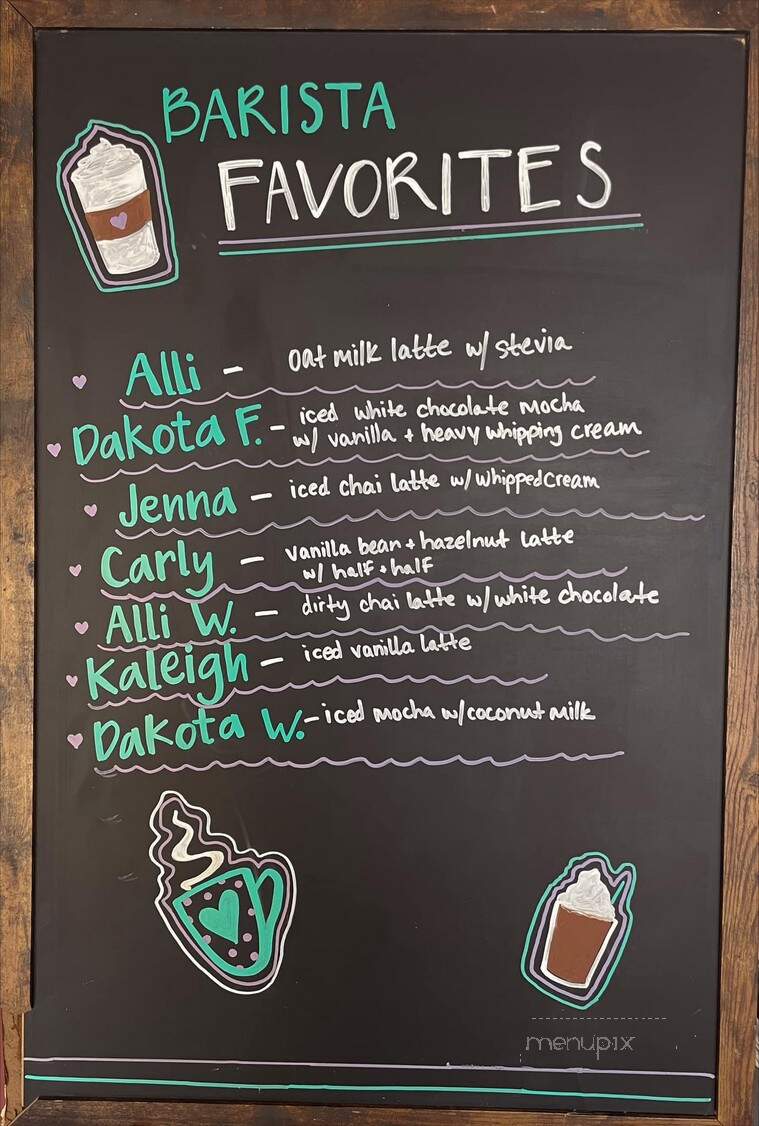 BARISTA
FAVORITES
Alli - oat milk latte w/ stevia
Dakota F. - iced white chocolate mocha
w/ vanilla + heavy whipping cream
Jenna - iced chai latte w/ whipped cream
Carly - vanilla bean + hazelnut latte
w/ half + half
Alli W. - dirty chai latte w/ white chocolate
Kaleigh - iced vanilla latte
Dakota W. - iced mocha w/ coconut milk
menupix